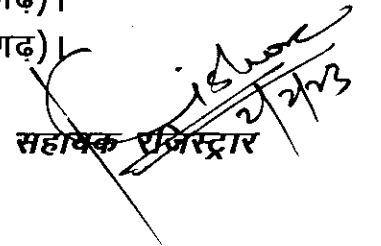 गढ़)।
गढ़)।
2/2/23
सहायक रजिस्ट्रार